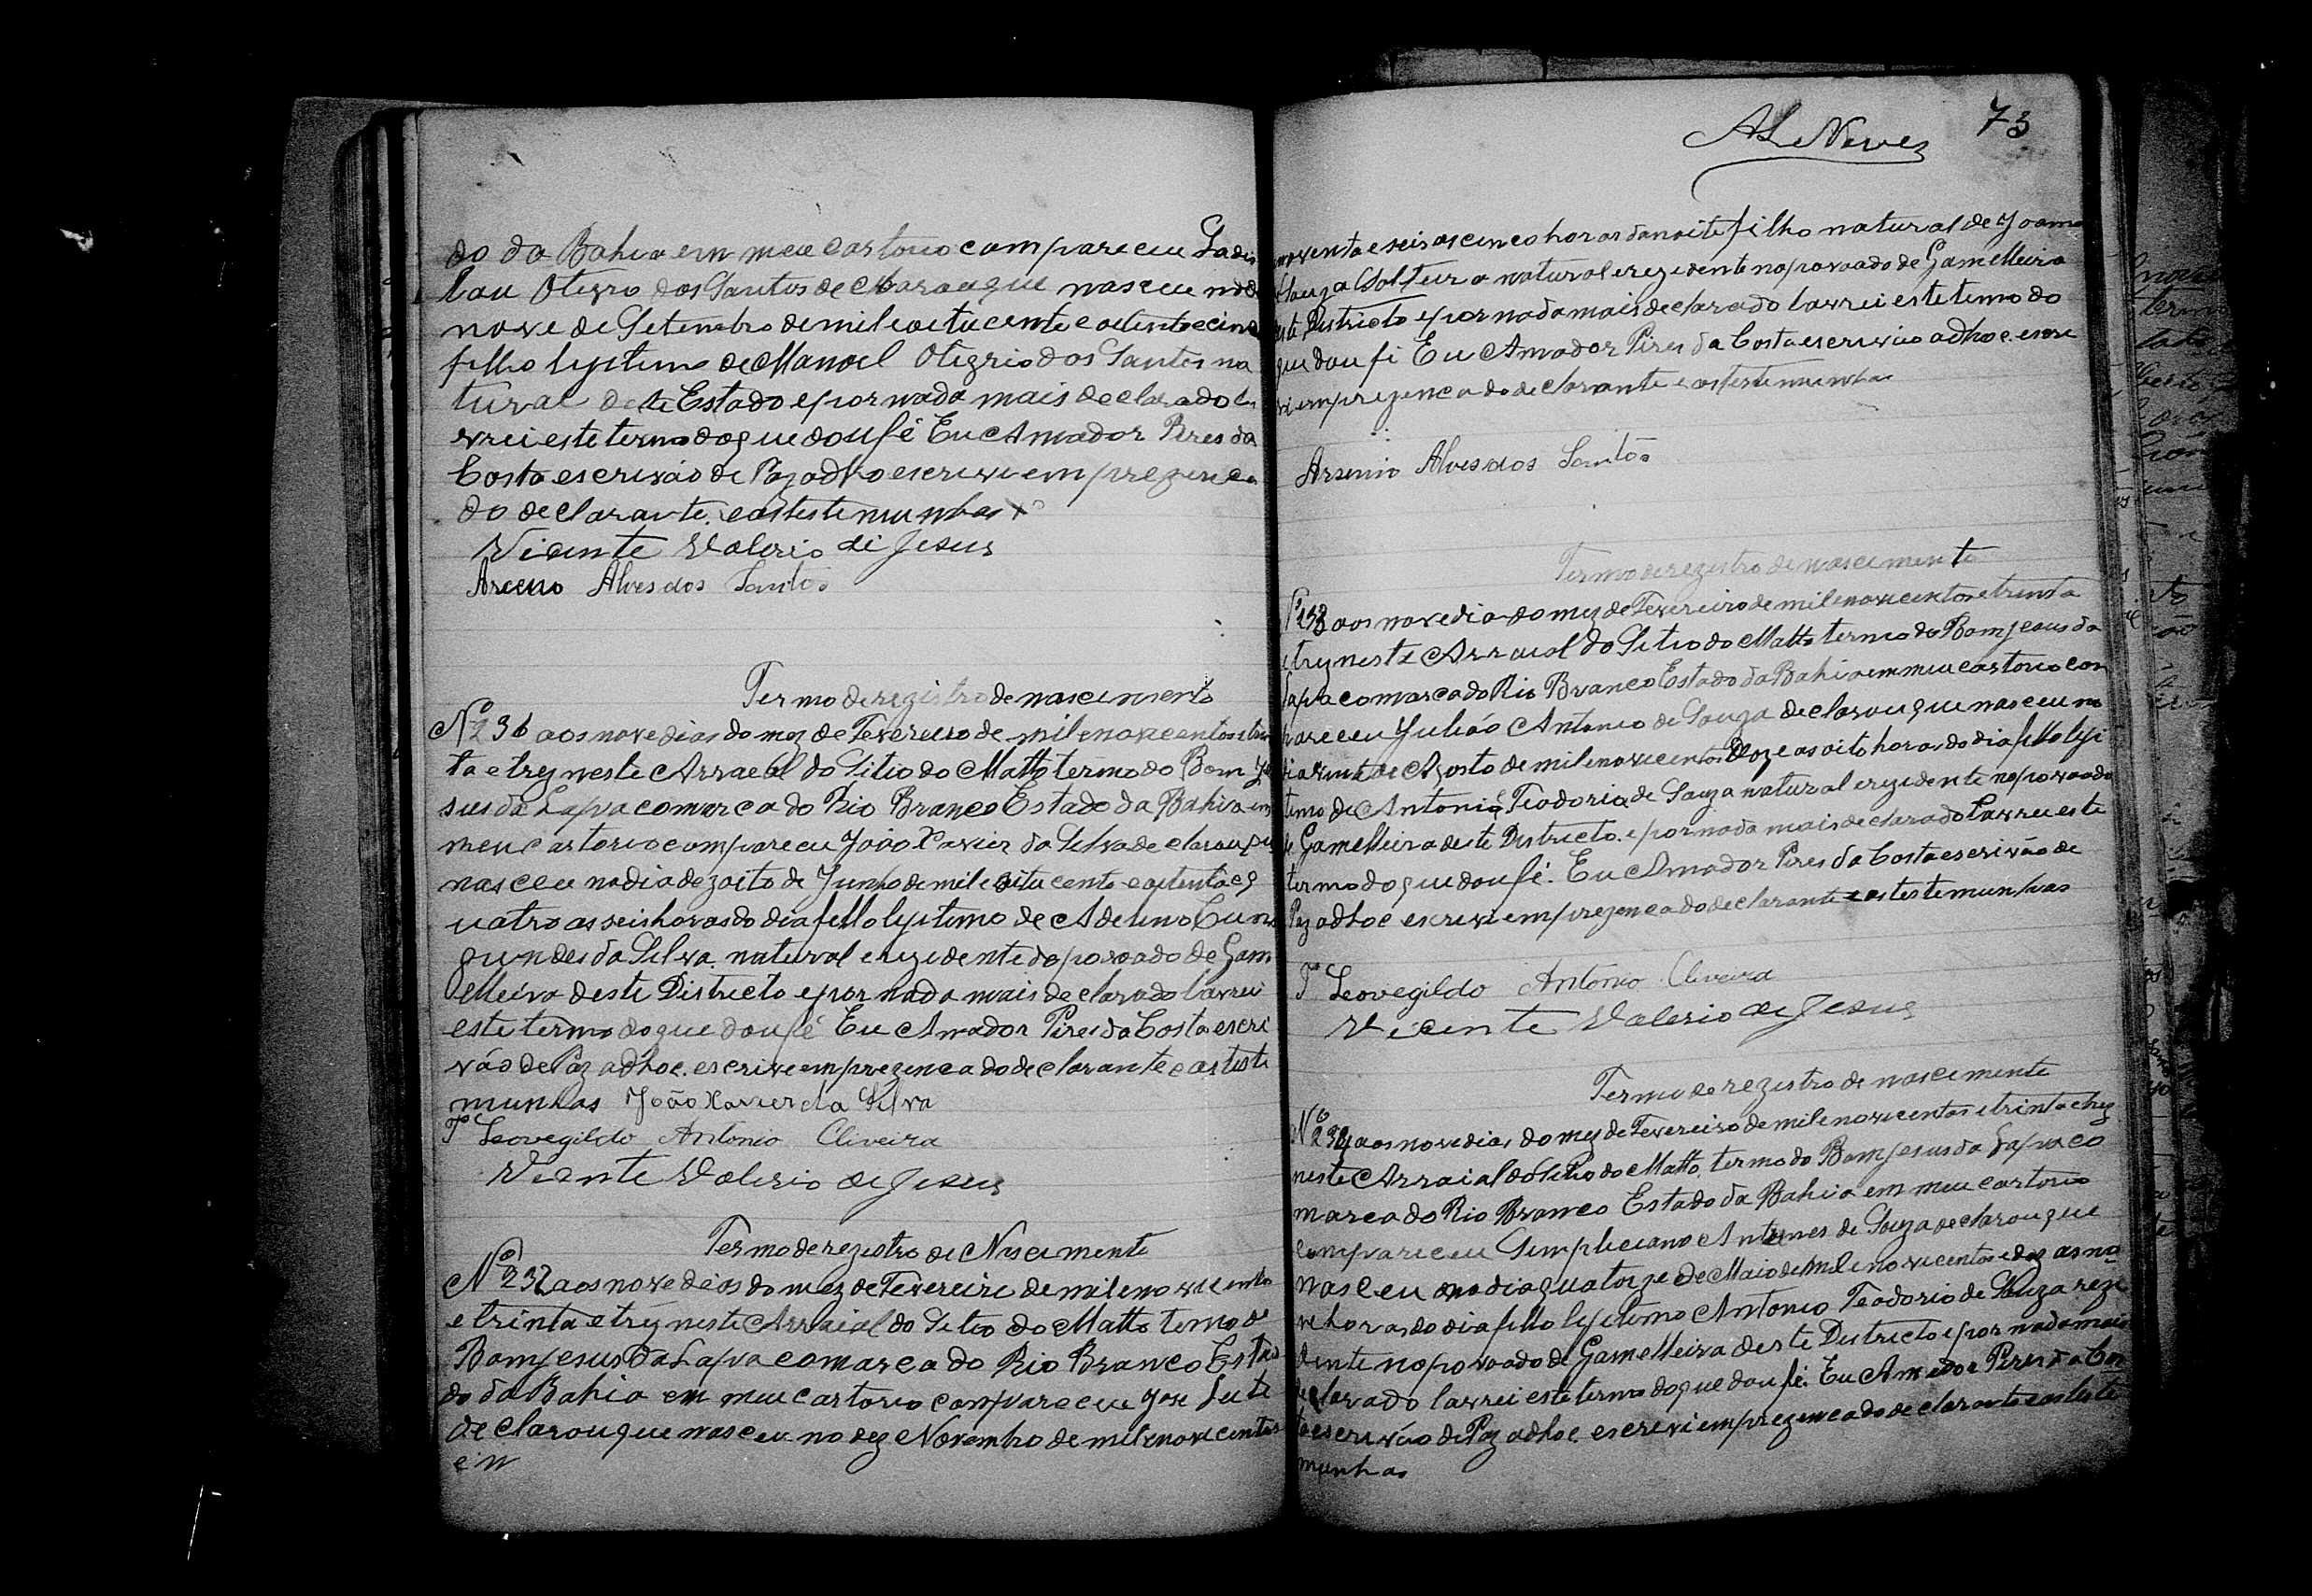 do da Bahia em meu cartorio compareceu Ladis
lau Otegrio dos Santos declarou que nasceu no di
nove de Setembro de mil e oitucento e oitenta e cinco
filho legitimo de Manoel Otegrio dos Santos na
tural deste Estado e por nada mais declarado la
vrei este termo do que dou fé Eu Amador Pires da
Costa escrivão de Paz adho escrevi em prezença
do declarante e as testemunhas
Vicente Valerio de Jesus
Arceno Alves dos Santos
Termo de registro de nascimento
Nº 236 aos nove dias do mez de Fevereiro de mil e novecentos e trin
ta e trez neste Arraeal do Sitio do Matto termo do Bom Je
sus da Lapa comarca do Rio Branco Estado da Bahia em
meu cartorio compareceu João Xavier da Silva declarou que
nasceu no dia dezoito de Junho de mil e oitucento e oitenta e q
uatro as seis horas do dia filho legitimo de Adelino Cun
gundes da Silva natural e rezidente do povoado de Gam
elleira deste Districto e por nada mais declarado lavrei
este termo do que dou fé Eu Amador Pires da Costa escri
vão de Paz adhoc escrevi em prezença do declarante e as teste
munhas João Xavier da Silva
Ta Leovegildo Antonio Oliveira
Vicente Valerio de Jesus
Termo de registro de Nascimento
Nº 237 aos nove dias do mez de Fevereiro de mil e novecento
e trinta e trez neste Arraial do Sitio do Matto termo de
Bom Jesus da Lapa comarca do Rio Branco Esta
do da Bahia em meu cartorio compareceu Jose Leite
declarou que nasceu no dez Novembro de mil e novecentos
e n
A L Neves 73
noventa e seis as cinco horas da noite filho natural de Joanna
Souza Solteira natural e rezidente no povoado de Gamelleira
deste Districto e por nada mais declarado lavrei este termo do
que dou fi Eu Amador Pires da Costa escrivão adhoc escre
vi em prezença do declarante e as testemunhas
Arsenio Alves dos Santos
Termo de registro de nascimento
Nº 238 aos nove dia do mez de Fevereiro de mil e novecentos e trinta
e trez neste Arraial do Sitio do Matto termo do Bom Jesus da
Lapa comarca do Rio Branco Estado da Bahia em meu cartorio com
pareceu Julião Antonio de Souza declarou que nasceu no
dia vinte de Agosto de mil e novecentos Doze as oito horas do dia filho legi
timo de Antonio Teodorio de Souza natural e rezidente no povoado
de Gamelleira deste Districto. e por nada mais declarado lavrei este
termo do que dou fé. Eu Amador Pires da Costa escrivão de
Paz adhoc escrevi em prezença do declarante e as testemunhas
Ta Leovegildo Antonio Oliveira
Vicente Valerio de Jesus
Termo de registro de nascimento
Nº 239 aos nove dias do mez de Fevereiro de mil e novecentos e trinta e trez
neste Arraial do Sitio do Matto termo do Bom Jesus da Lapa co
marca do Rio Branco Estado da Bahia em meu cartorio
compareceu Simpliciano Antunes de Souza declarou que
nasceu no dia quatorze de Maio de mil e novecentos e dez as no
ve horas do dia filho legitimo Antonio Teodorio de Souza rezi
dente no povoado de Gamelleira deste Districto e por nada mais
declarado lavrei este termo do que dou fé. Eu Amador Pires da Cos
ta escrivão de Paz adhoc escrevi em prezença do declarante e as teste
munhas